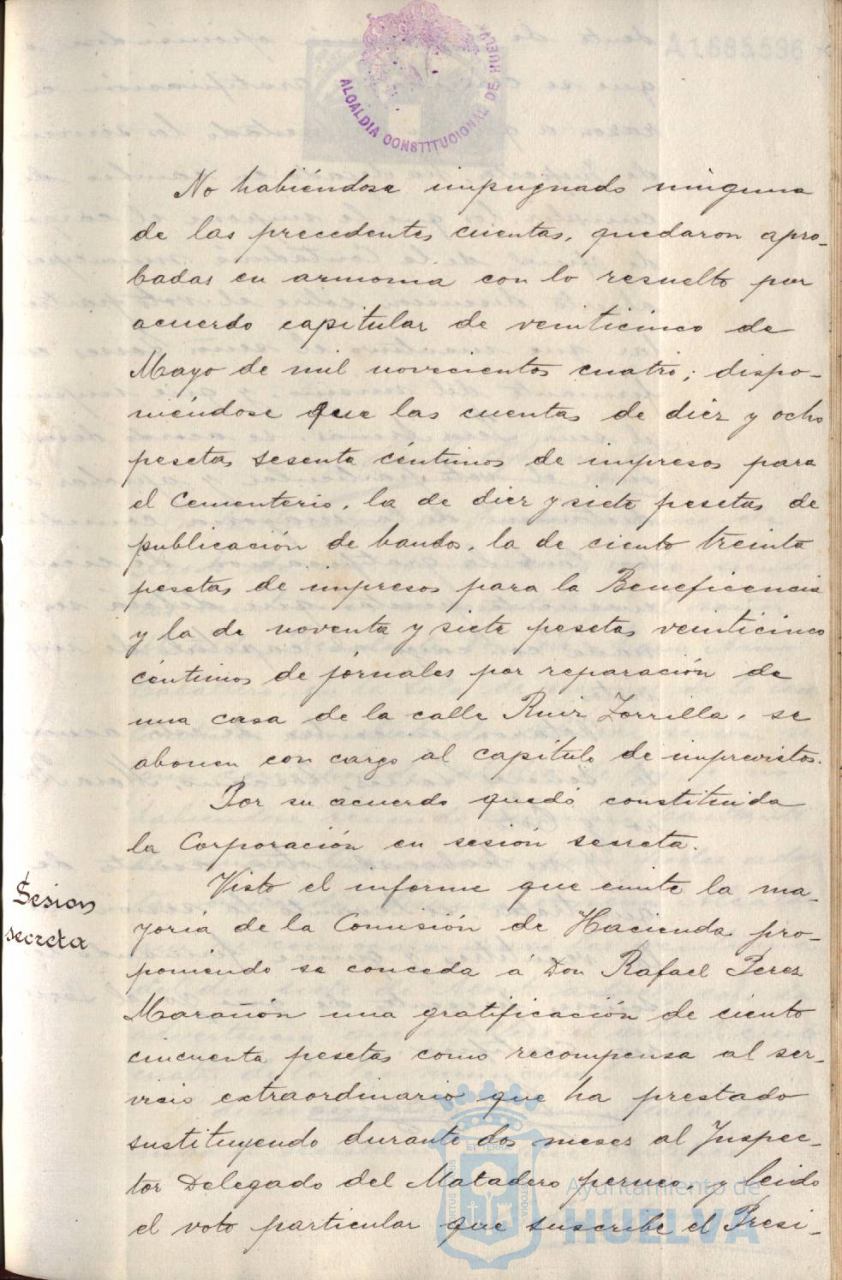 ALCALDIA CONSTITUCIONAL DE HUELVA
No habiéndose impugnado ninguna
de las precedentes cuentas, quedaron apro-
badas en armonia con lo resuelto por
acuerdo capitular de veinticinco de
Mayo de mil novecientos cuatro; dispo-
niéndose que las cuentas de diez y ocho
pesetas sesenta céntimos de impresos para
el Cementerio, la de diez y siete pesetas de
publicación de bandos, la de ciento treinta
pesetas de impresos para la Beneficencia
y la de noventa y siete pesetas veinticinco
céntimos de jornales por reparación de
una casa de la calle Ruiz Zorrilla, se
abonen con cargo al capitulo de imprevistos.
Por su acuerdo quedó constituida
la Corporación en sesión secreta.
Sesion
secreta
Visto el informe que emite la ma-
yoria de la Comisión de Hacienda pro-
poniendo se conceda á Don Rafael Perez
Marañón una gratificación de ciento
cincuenta pesetas como recompensa al ser-
vicio extraordinario que ha prestado
sustituyendo durante dos meses al Inspec-
tor Delegado del Matadero perneo, y leido
el voto particular que suscribe el Presi-
Ayuntamiento de
HUELVA